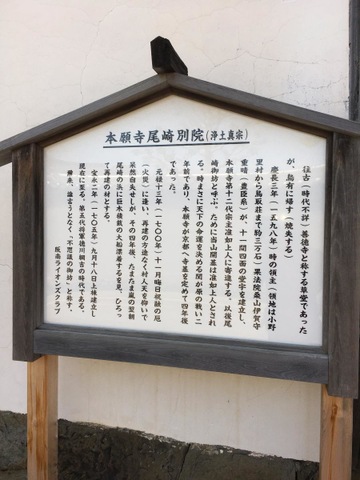 本願寺尾崎別院(浄土真宗)
往古(時代不詳)善徳寺と称する草堂であった
が、烏有に帰す(焼失する)
慶長三年(一五九八年)時の領主(領地は小野
里村から鳥取荘まで約三万石)果法院桑山伊賀守
重晴(豊臣系)が、十一間四面の堂宇を建立し、
本願寺第十二代宗主准如上人に寄進する。以後尾
崎御坊と呼ぶ。ために当山開基は准如上人とされ
る。時まさに天下の命運を決める関が原の戦い二
年前であり、本願寺が京都へ寺基を定めて四年後
であった。
元禄十三年(一七〇〇年)十一月晦日祝融の厄
(火災)に逢い、再建の方途なく村人天を仰いで
呆然自失せしが、その四年後、たまたま嵐の翌朝
尾崎の浜に巨木積載の大船漂着するを見、ひろっ
て再建の材とする。
宝永二年(一七〇五年)九月十八日上棟建立し
現在に至る。第五代将軍徳川綱吉の時代である。
爾来、誰言うとなく、「不思議の御坊」と称す。
阪南ライオンズクラブ